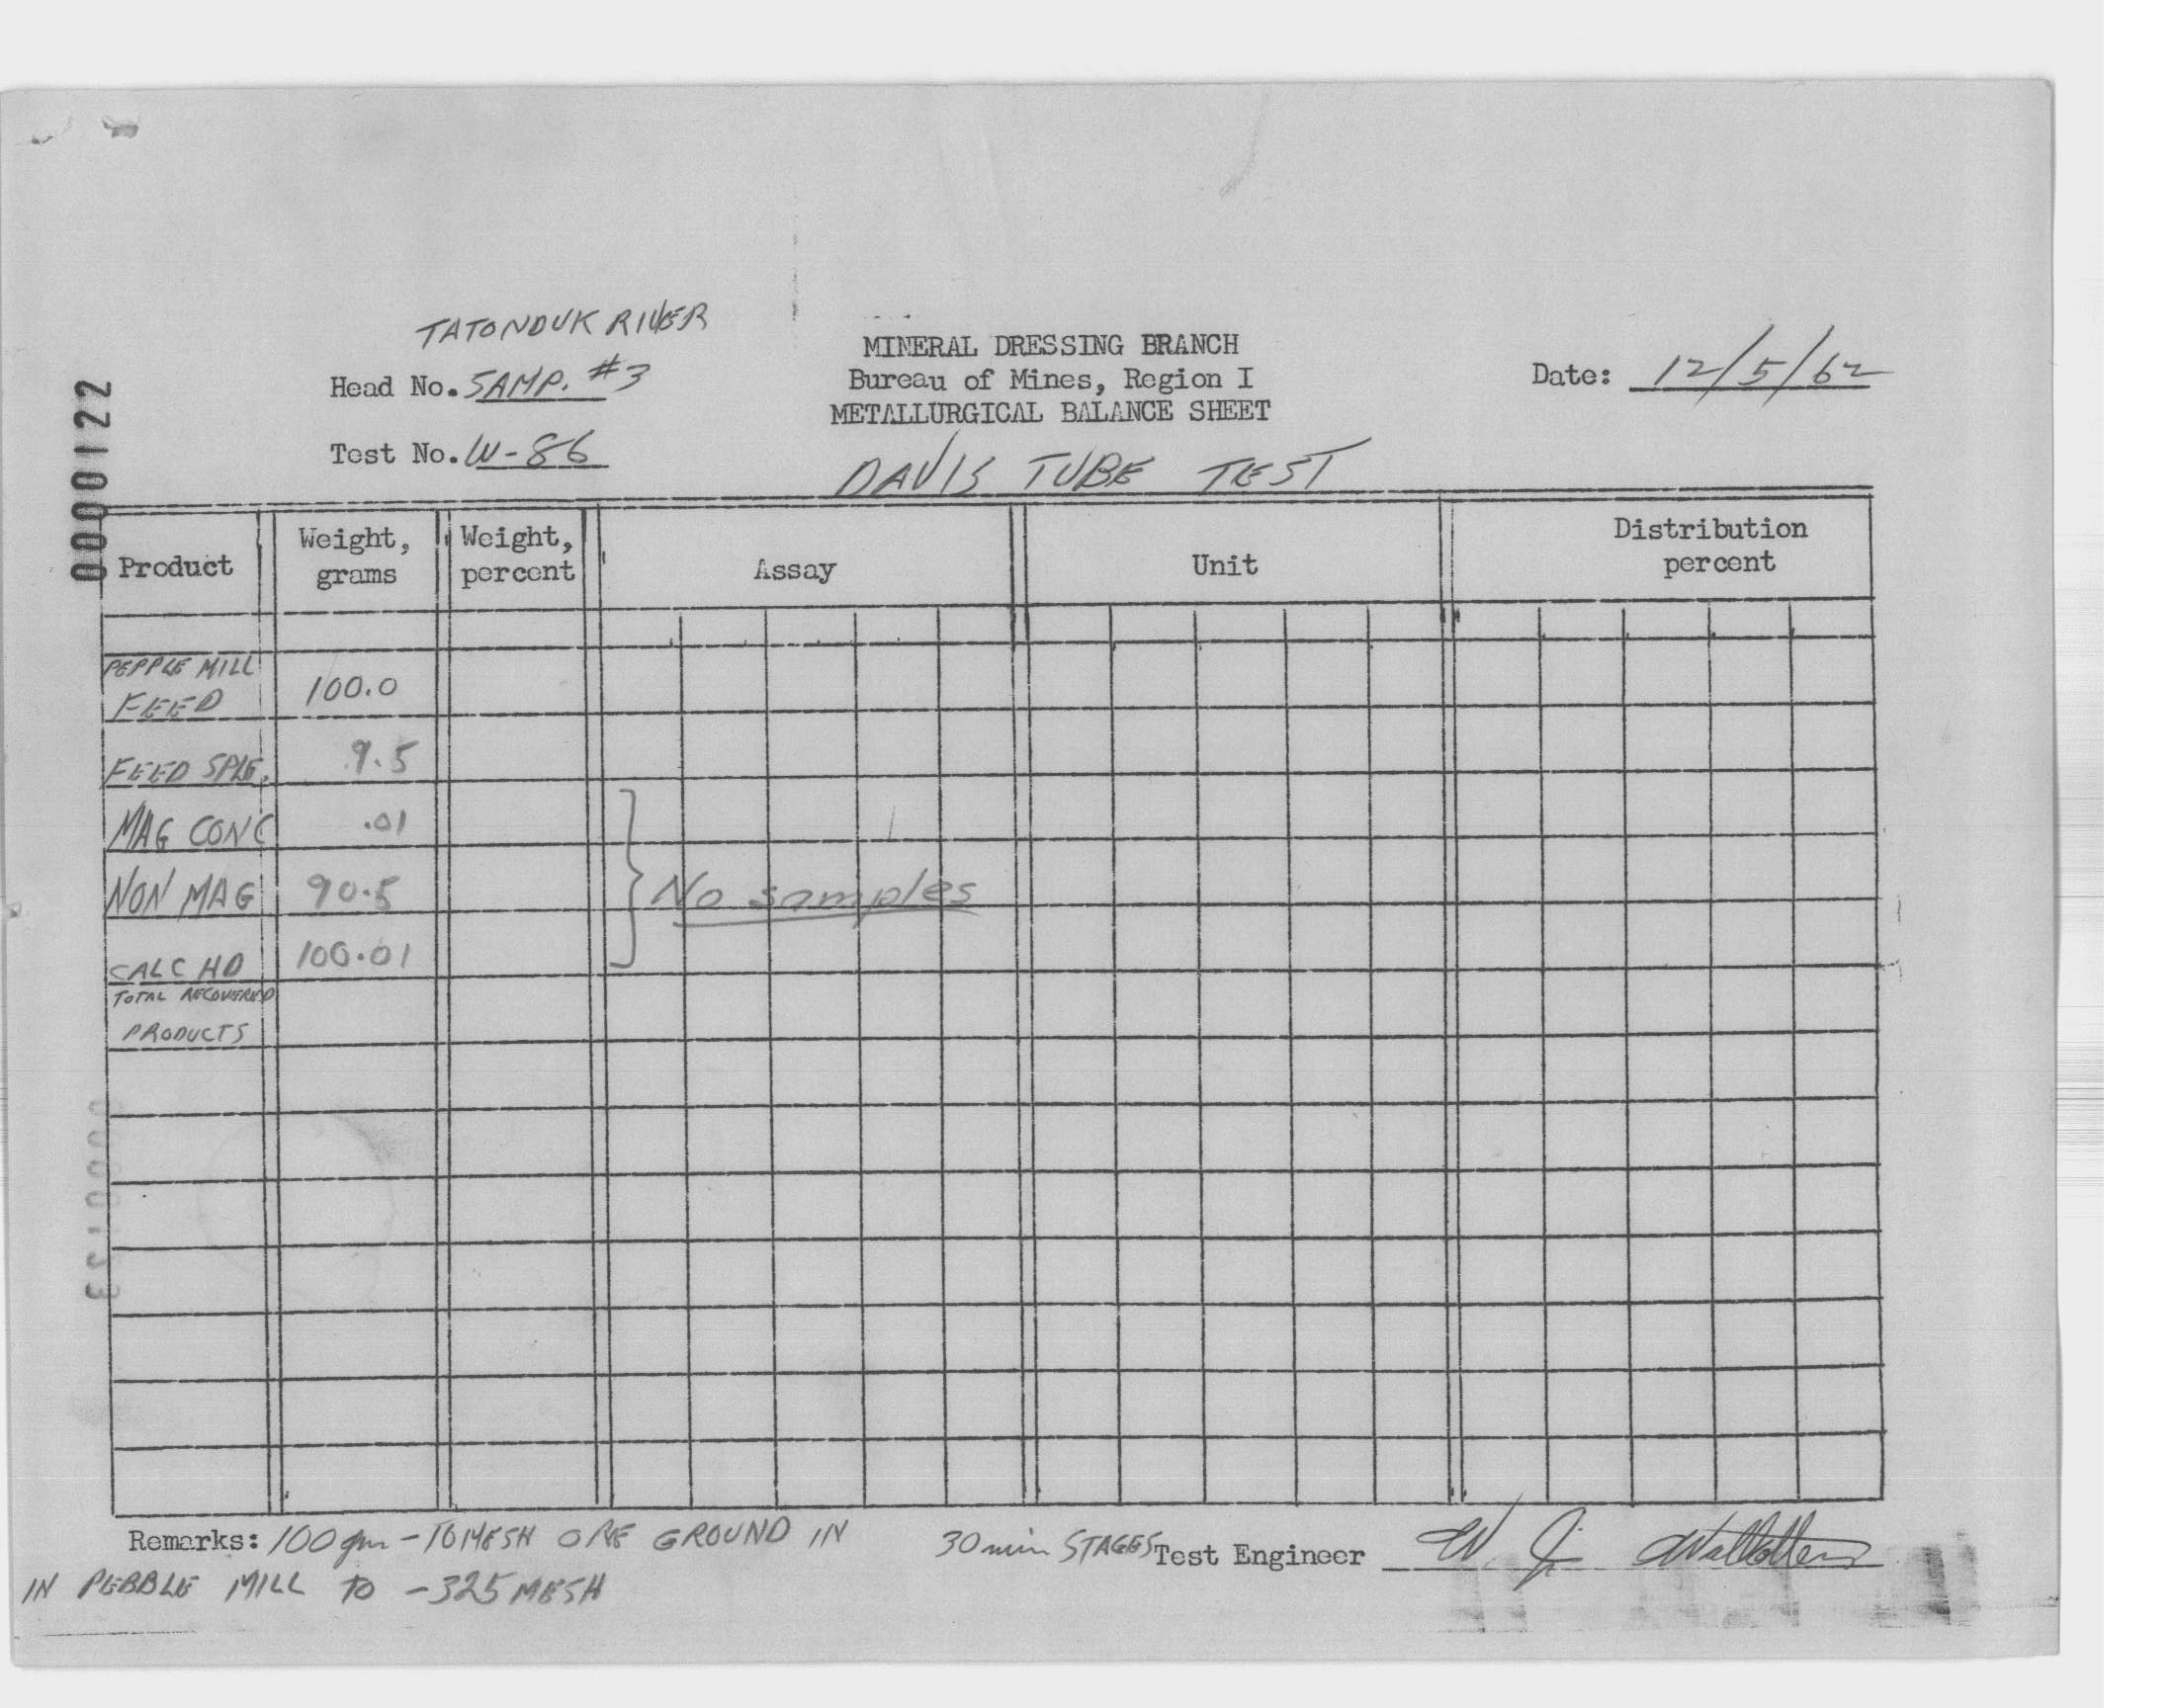 0000122
TATONDUK RIVER
Head No. SAMP. #3
Test No. W-86
MINERAL DRESSING BRANCH
Bureau of Mines, Region I
METALLURGICAL BALANCE SHEET
DAVIS TUBE TEST
Date: 12/5/62
Product Weight, grams Weight, percent Assay Unit Distribution percent
PEPPLE MILL FEED 100.0
FEED SPLE. 9.5
MAG CONC .01
NON MAG 90.5
No samples
CALC HD 100.01
TOTAL RECOVERED
PRODUCTS
Remarks: 100 gm -10 MESH ORE GROUND IN 30 min STAGES
IN PEBBLE MILL TO -325 MESH
Test Engineer W. J.